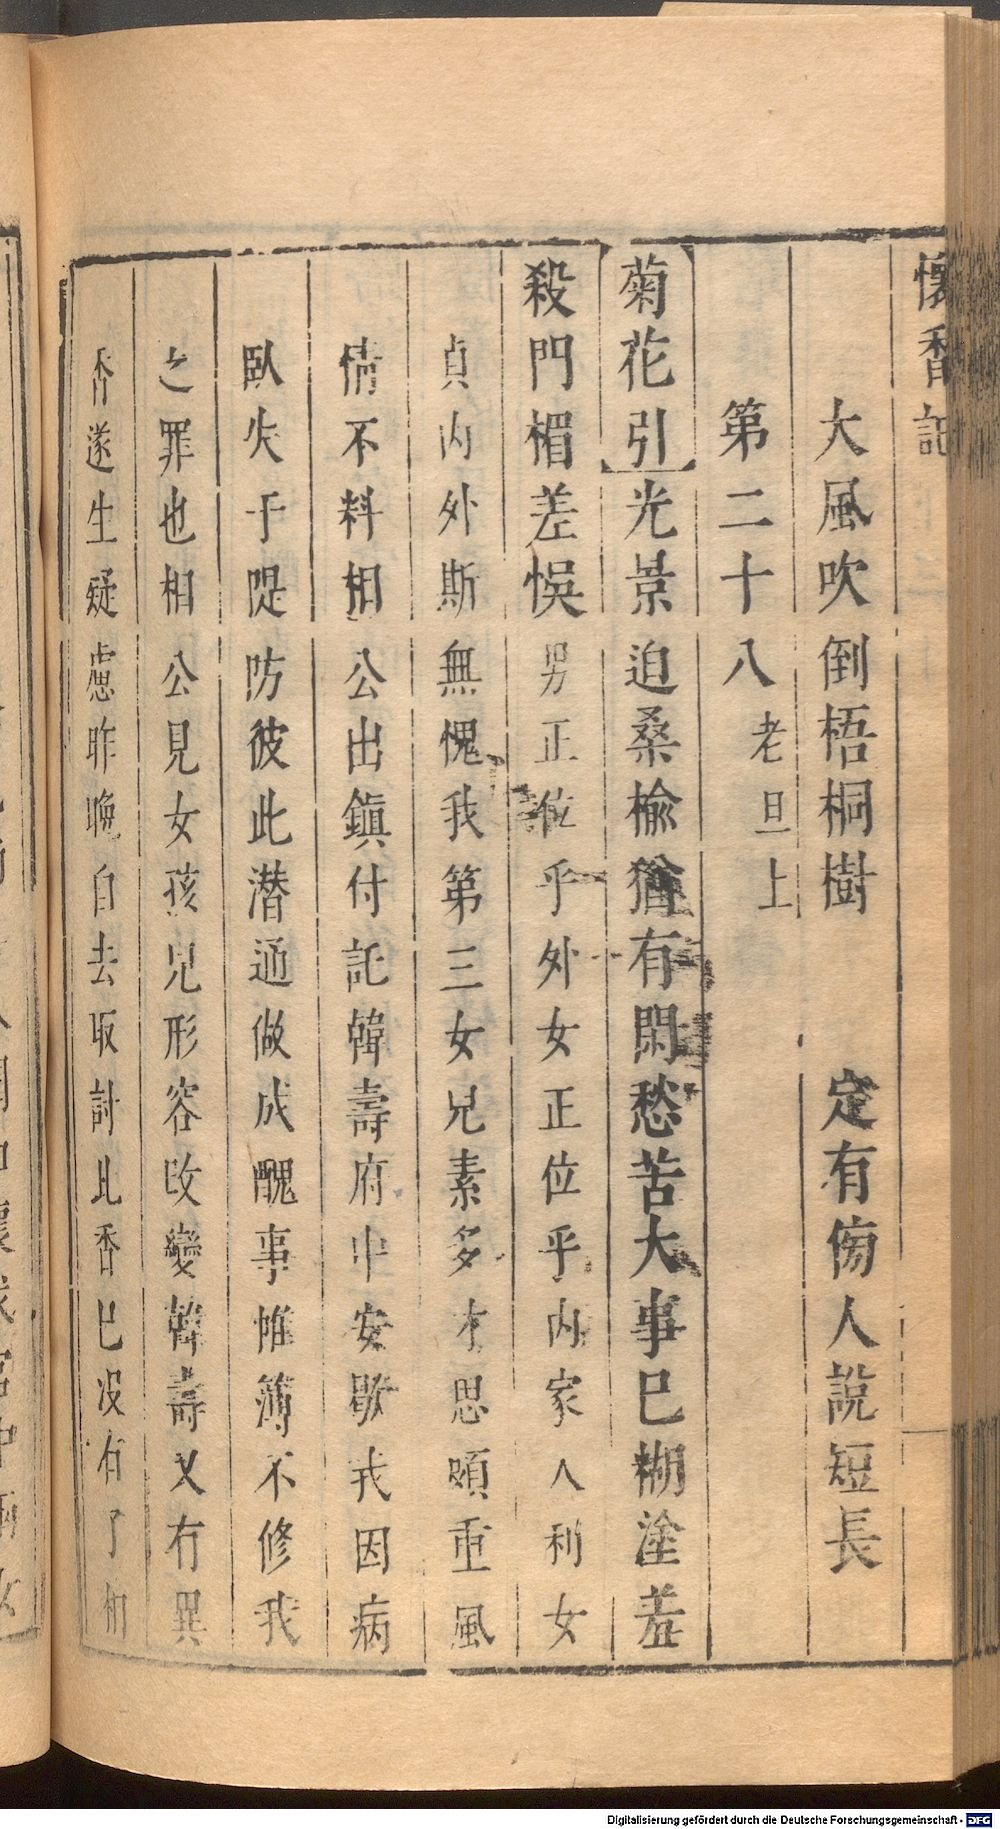 懷香記
大風吹倒梧桐樹　定有傍人說短長
第二十八老旦上
菊花引光景迫桑榆猶有閑愁苦大事巳糊塗羞
殺門楣差悞男正位乎外女正位乎內家人利女
貞內外斯無愧我第三女兒素多才思頗重風
情不料相公出鎮付託韓壽府中安歇我因病
臥失于隄防彼此潜通做成醜事惟簿不修我
之罪也相公見女孩兒形容改變韓壽又有異
香遂生疑慮昨晚自去取討此香巳没有了相
Digitalisierung gefördert durch die Deutsche Forschungsgemeinschaft - DFG